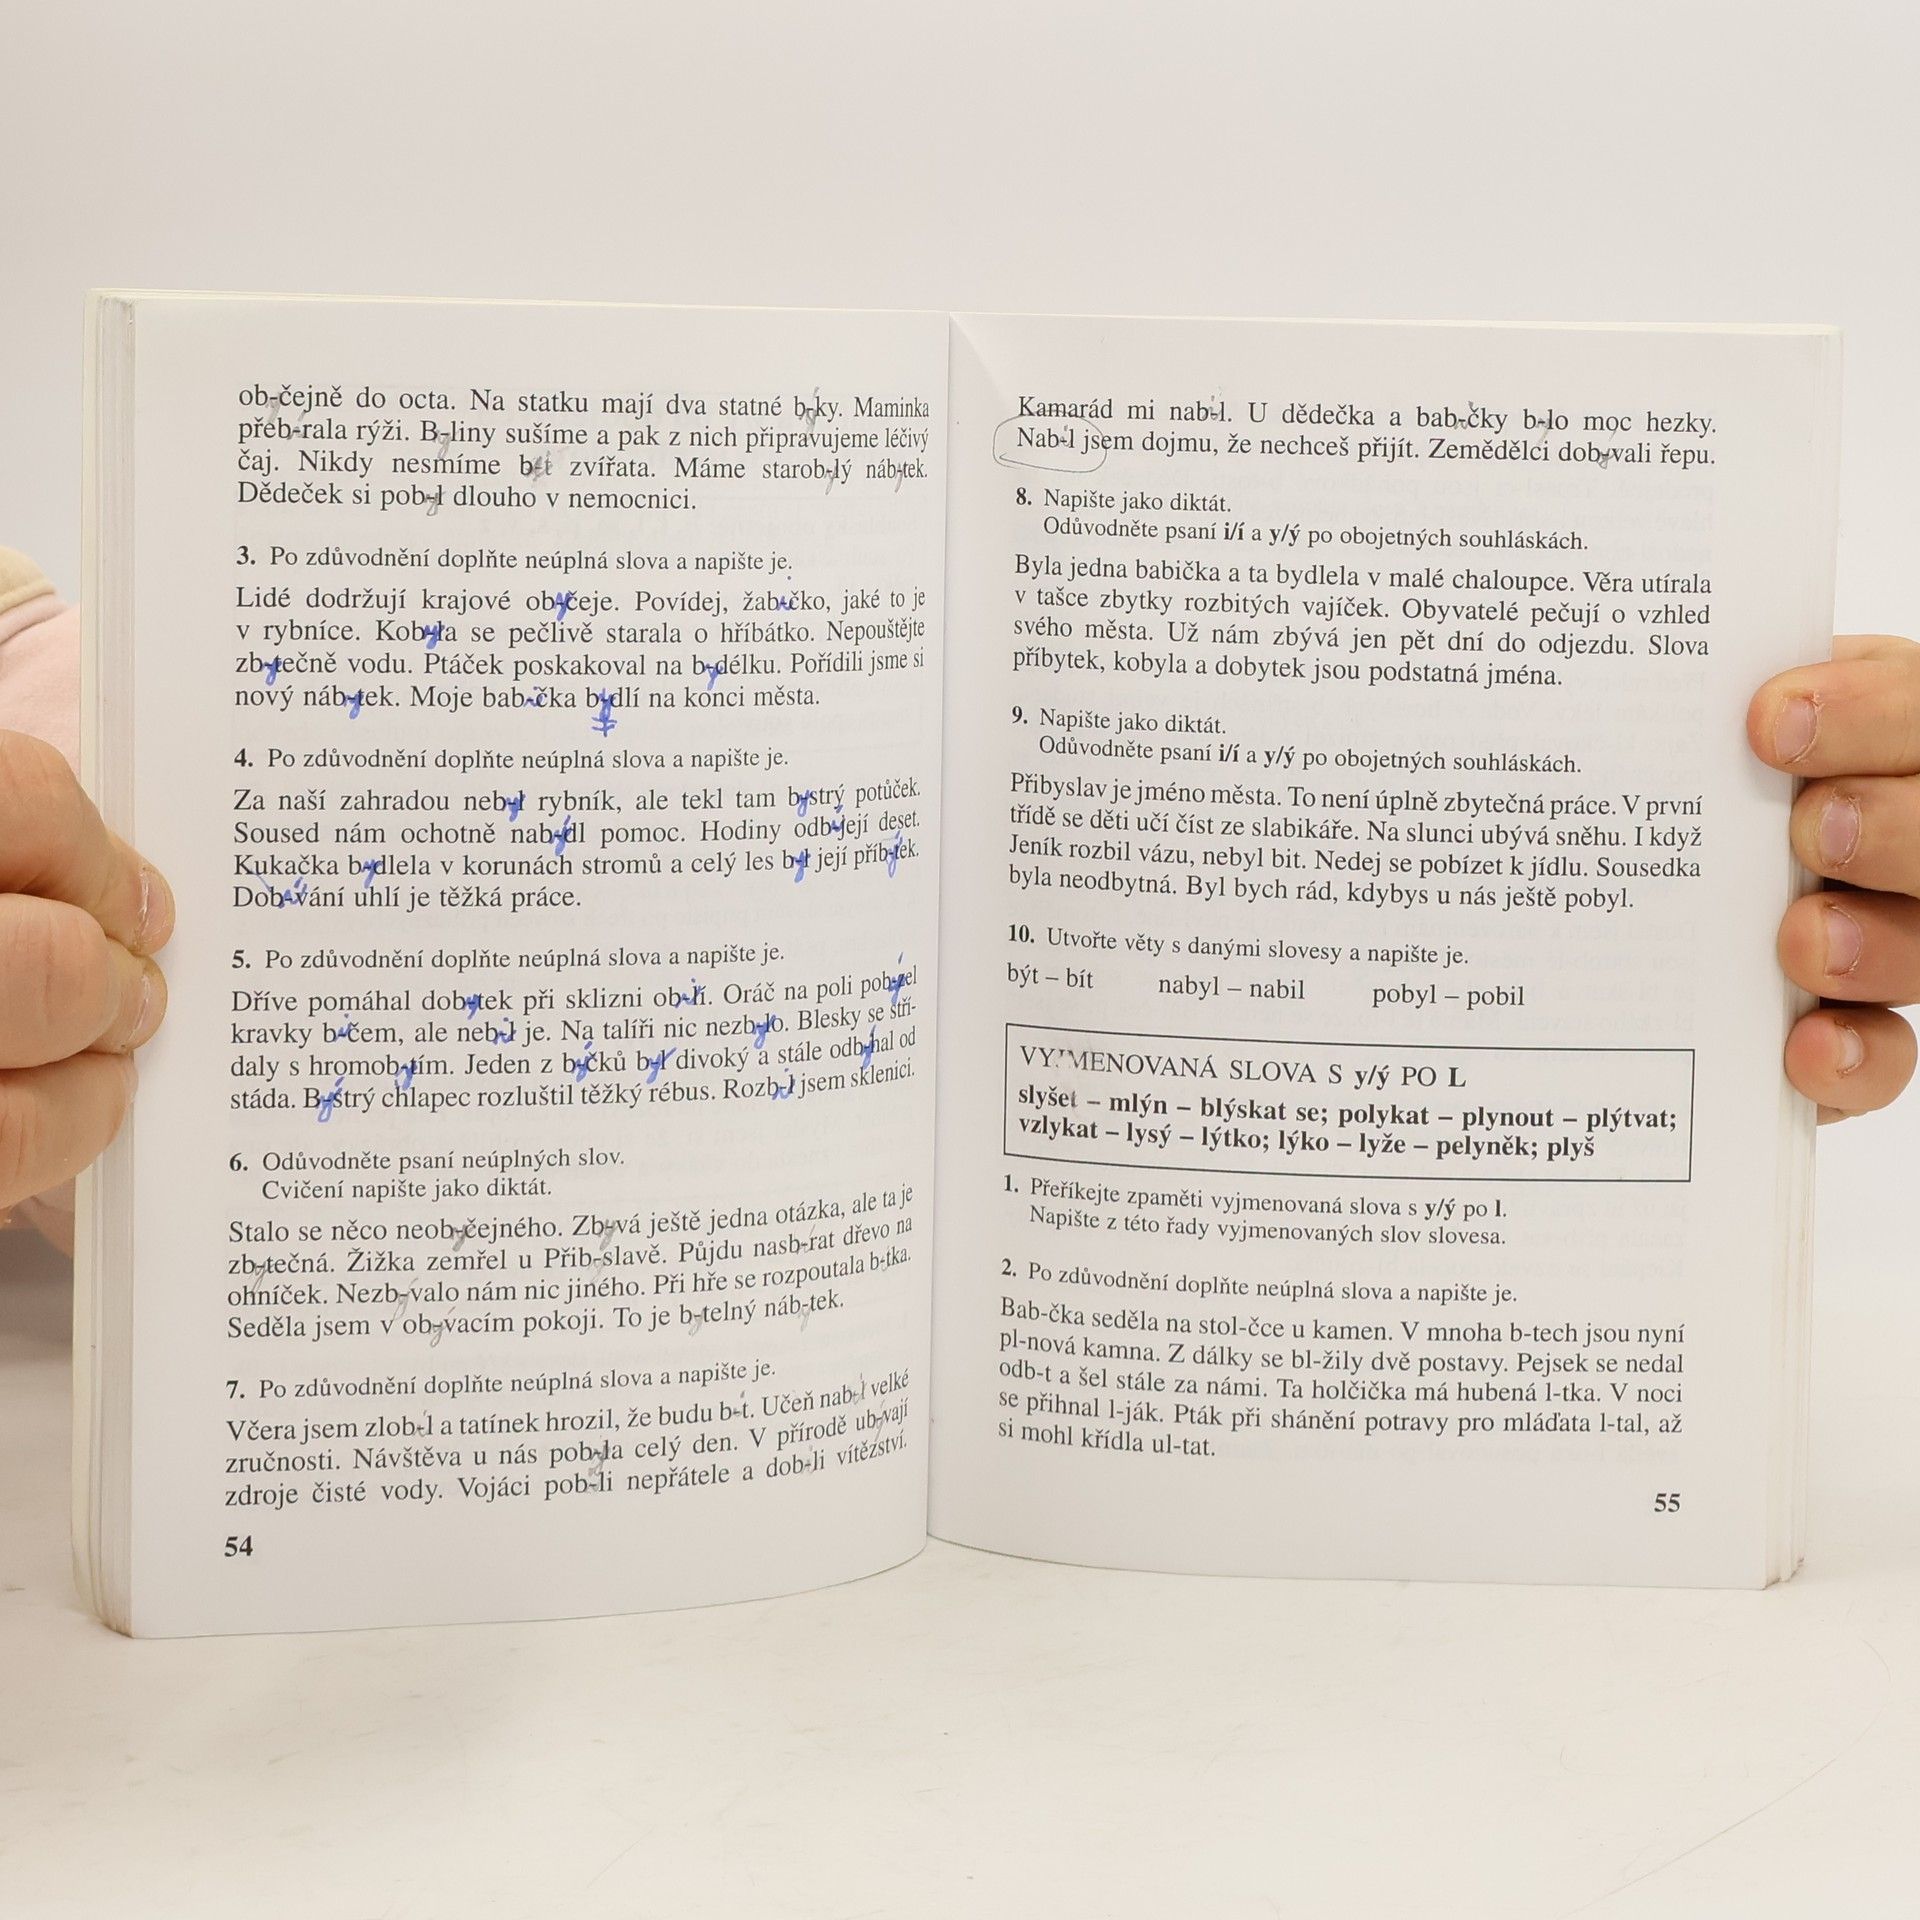 ob-čejně do octa. Na statku mají dva statné b-ky. Maminka
přeb-rala rýži. B-liny sušíme a pak z nich připravujeme léčivý
čaj. Nikdy nesmíme b-t zvířata. Máme starob-lý náb-tek.
Dědeček si pob-l dlouho v nemocnici.
3. Po zdůvodnění doplňte neúplná slova a napište je.
Lidé dodržují krajové ob-čeje. Povídej, žab-čko, jaké to je
v rybníce. Kob-la se pečlivě starala o hříbátko. Nepouštějte
zb-tečně vodu. Ptáček poskakoval na b-délku. Pořídili jsme si
nový náb-tek. Moje bab-čka b-dlí na konci města.
4. Po zdůvodnění doplňte neúplná slova a napište je.
Za naší zahradou neb-l rybník, ale tekl tam b-strý potůček.
Soused nám ochotně nab-dl pomoc. Hodiny odb-její deset.
Kukačka b-dlela v korunách stromů a celý les b-l její příb-tek.
Dob-vání uhlí je těžká práce.
5. Po zdůvodnění doplňte neúplná slova a napište je.
Dříve pomáhal dob-tek při sklizni ob-lí. Oráč na poli pob-zel
kravky b-čem, ale neb-l je. Na talíři nic nezb-lo. Blesky se stří-
daly s hromob-tím. Jeden z b-čků b-l divoký a stále odb-hal od
stáda. B-strý chlapec rozluštil těžký rébus. Rozb-l jsem sklenici.
6. Odůvodněte psaní neúplných slov.
Cvičení napište jako diktát.
Stalo se něco neob-čejného. Zb-vá ještě jedna otázka, ale ta je
zb-tečná. Žižka zemřel u Přib-slavě. Půjdu nasb-rat dřevo na
ohníček. Nezb-valo nám nic jiného. Při hře se rozpoutala b-tka.
Seděla jsem v ob-vacím pokoji. To je b-telný náb-tek.
7. Po zdůvodnění doplňte neúplná slova a napište je.
Včera jsem zlob-l a tatínek hrozil, že budu b-t. Učeň nab-l velké
zručnosti. Návštěva u nás pob-la celý den. V přírodě ub-vají
zdroje čisté vody. Vojáci pob-li nepřátele a dob-li vítězství.
54
Kamarád mi nab-l. U dědečka a bab-čky b-lo moc hezky.
Nab-l jsem dojmu, že nechceš přijít. Zemědělci dob-vali řepu.
8. Napište jako diktát.
Odůvodněte psaní i/í a y/ý po obojetných souhláskách.
Byla jedna babička a ta bydlela v malé chaloupce. Věra utírala
v tašce zbytky rozbitých vajíček. Obyvatelé pečují o vzhled
svého města. Už nám zbývá jen pět dní do odjezdu. Slova
příbytek, kobyla a dobytek jsou podstatná jména.
9. Napište jako diktát.
Odůvodněte psaní i/í a y/ý po obojetných souhláskách.
Přibyslav je jméno města. To není úplně zbytečná práce. V první
třídě se děti učí číst ze slabikáře. Na slunci ubývá sněhu. I když
Jeník rozbil vázu, nebyl bit. Nedej se pobízet k jídlu. Sousedka
byla neodbytná. Byl bych rád, kdybys u nás ještě pobyl.
10. Utvořte věty s danými slovesy a napište je.
být – bít nabyl – nabil pobyl – pobil
VYJMENOVANÁ SLOVA S y/ý PO L
slyšet – mlýn – blýskat se; polykat – plynout – plýtvat;
vzlykat – lysý – lýtko; lýko – lyže – pelyněk; plyš
1. Přeříkejte zpaměti vyjmenovaná slova s y/ý po l.
Napište z této řady vyjmenovaných slov slovesa.
2. Po zdůvodnění doplňte neúplná slova a napište je.
Bab-čka seděla na stol-čce u kamen. V mnoha b-tech jsou nyní
pl-nová kamna. Z dálky se bl-žily dvě postavy. Pejsek se nedal
odb-t a šel stále za námi. Ta holčička má hubená l-tka. V noci
se přihnal l-ják. Pták při shánění potravy pro mláďata l-tal, až
si mohl křídla ul-tat.
55